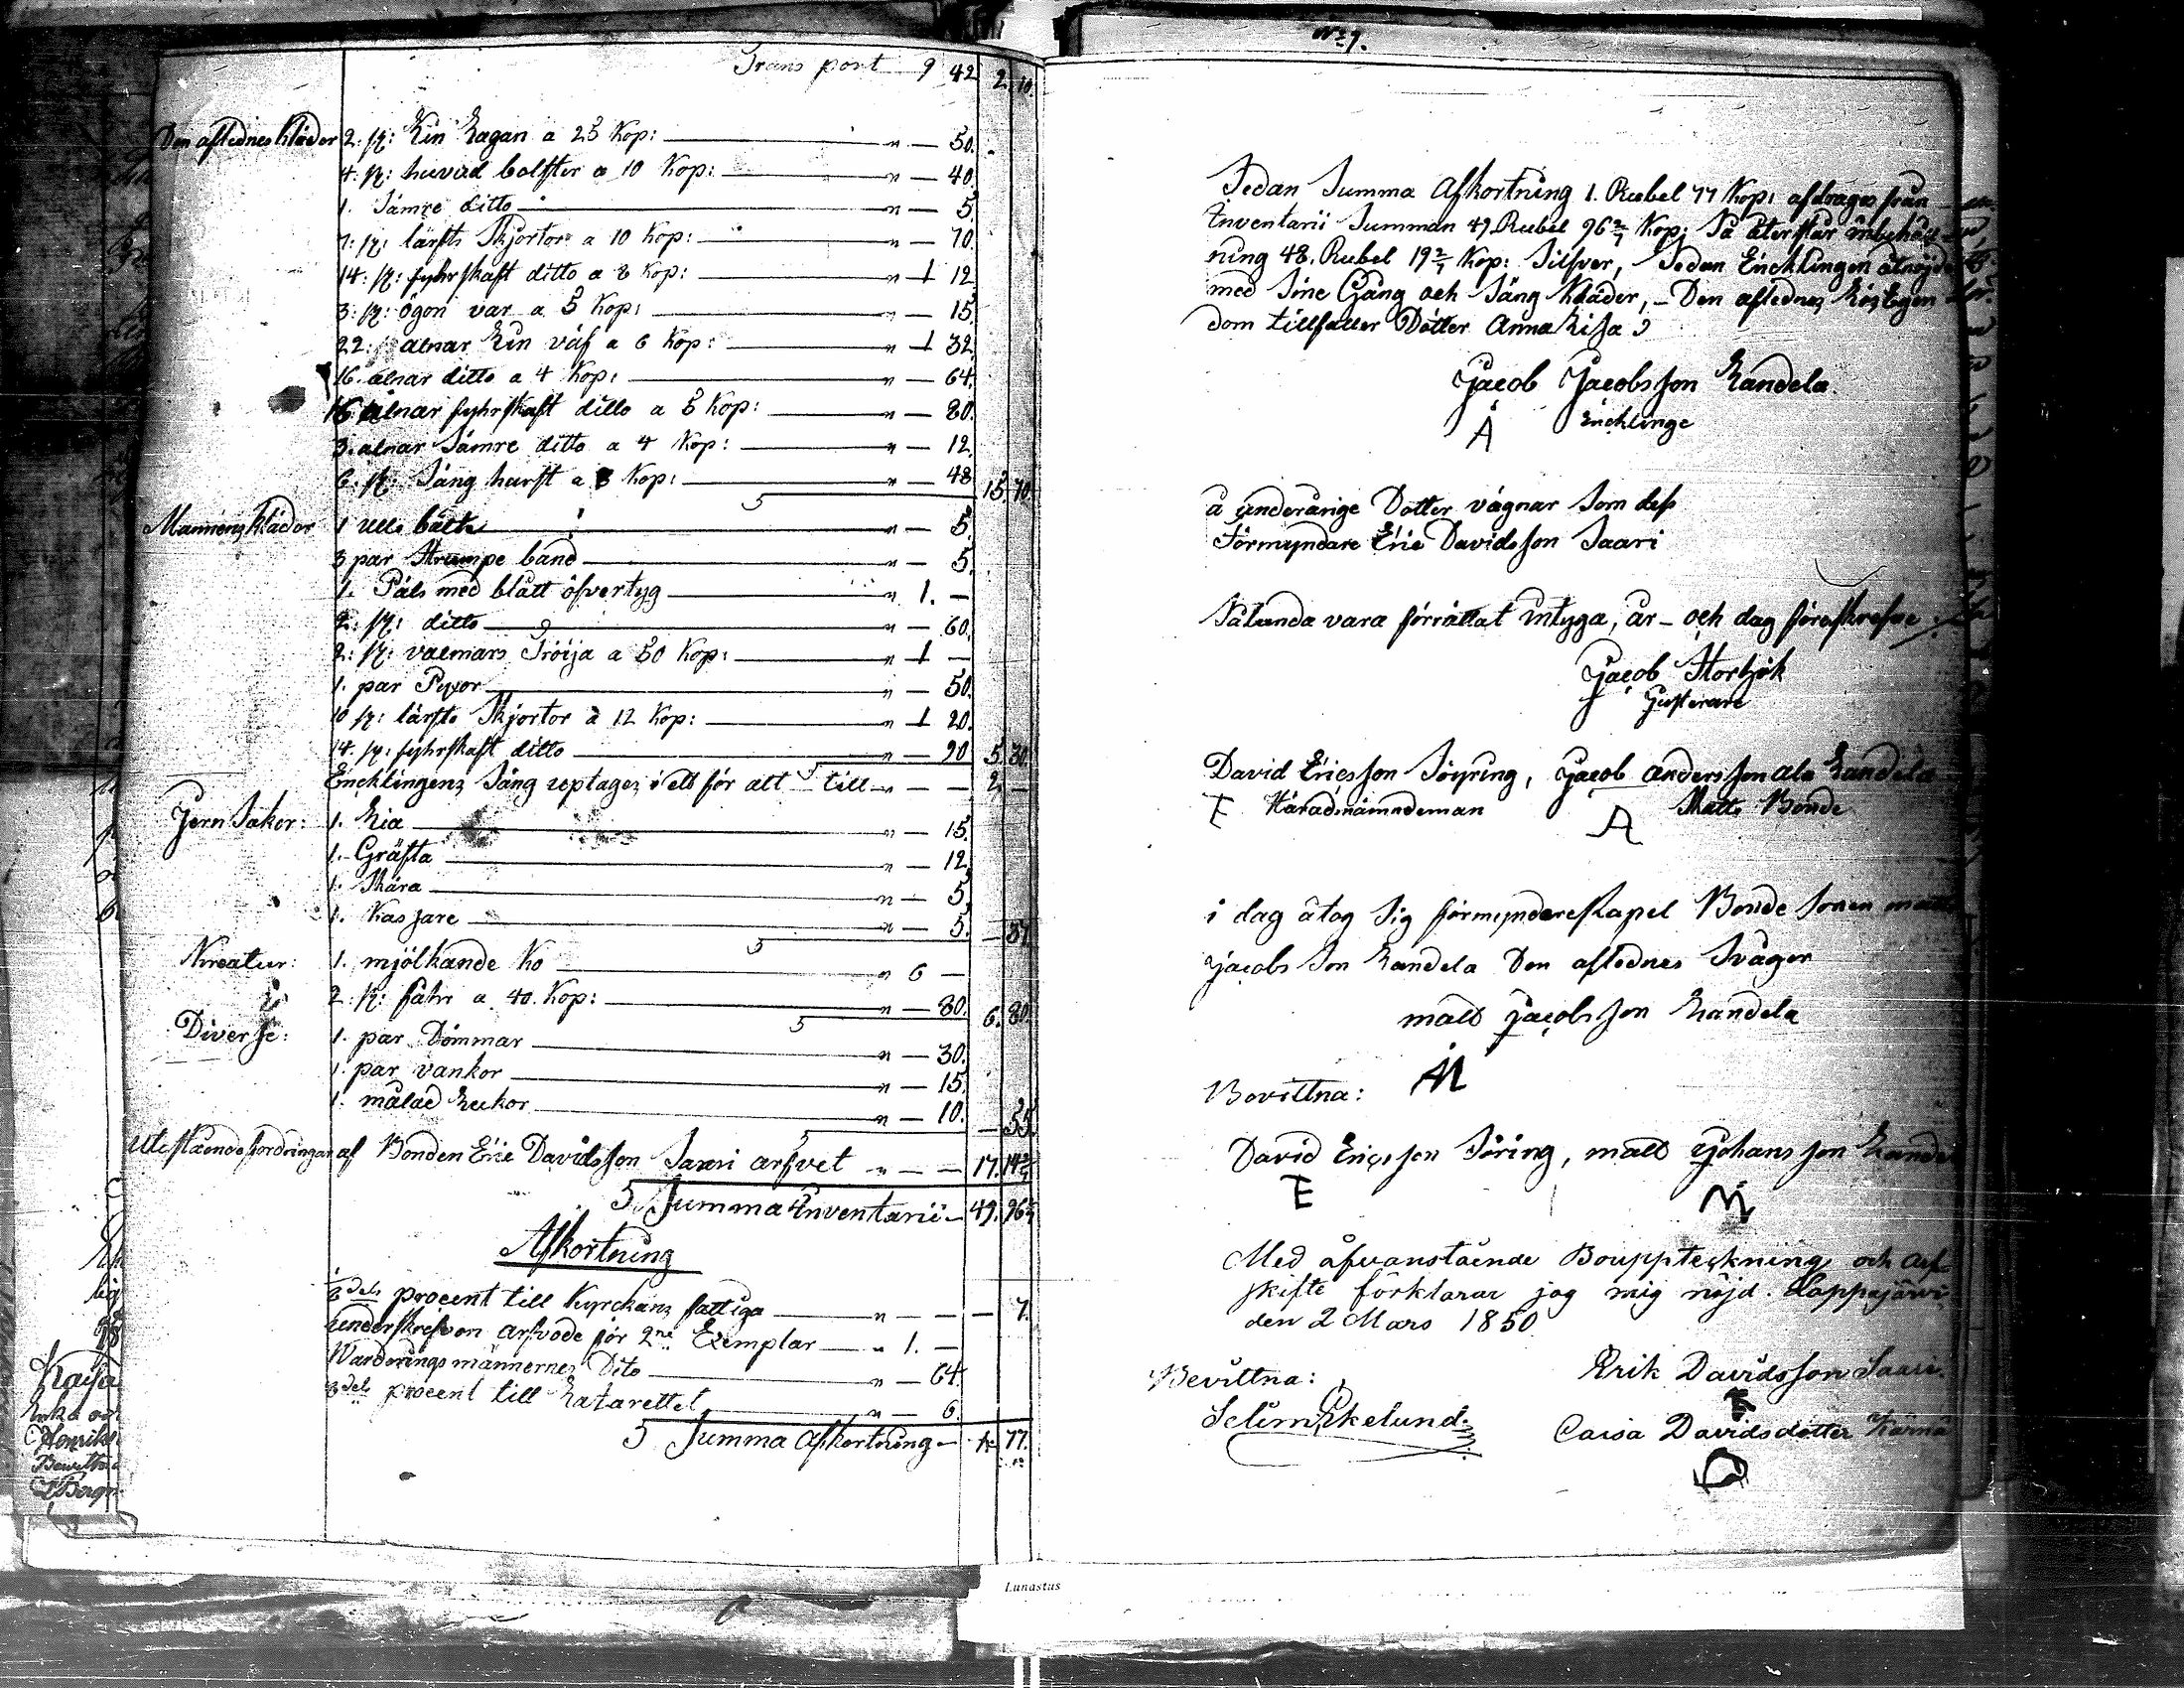 Trans port 9 42 2. 10.
Den aflednes kläder 2. st: Lin Lagan a 25 Kop: " — 50.
4. st: huvud bolster a 10 Kop: " — 40
1. Sämre ditto " — 5.
7. st: lärfts Skjortor a 10 Kop: " — 70.
14. st: fyhrskaft ditto a 8 Kop: " 1 12
3: st: ögon var a 5 Kop: " — 15.
22: alnar Lin väf a 6 Kop: " 1 32.
16. alnar ditto a 4 Kop: " — 64.
16 alnar fyhrskaft ditto a 5 Kop: " — 80.
3. alnar Sämre ditto a 4 Kop: " — 12.
6. st: Säng hurst a 8 Kop: " — 48 15. 70.
Mannens kläder 1 Ulls bälte " — 5.
3 par Strumpe band " — 5.
1. Päls med blått öfvertyg " 1. —
2: st: ditto " — 60.
2: st: valmars Tröija a 50 Kop: " 1 —
1. par Pyxor " — 50.
10 st: lärfts Skjortor a 12 Kop: " 1 20.
14. st: fyhrskaft ditto " — 90 5. 30.
Encklingens Säng uptages i ett för alt till " — — 2. —
Jern Saker: 1. Lia " — 15.
1. Gräfta " — 12.
1. Skära " — 5.
1. Kassare " — 5. — 37.
Kreatur: 1. mjölkande Ko " 6 —
2. st: fahr a 40. Kop: " — 80. 6. 80.
Diverse: 1. par Dömmar " — 30.
1. par vankor " — 15.
1. målad Luckor " — 10. — 55.
Utestående fordringar af Bonden Eric Davidsson Saari arfvet " — — 17. 14 2/7
S Summa Inventarii — 49. 96 2/7
Afkortning
8 dels procent till Kyrckans fattiga " — — — 7.
Underskrefven arfvode för 2ne Exemplar " 1. —
Warderingsmännernes Dito " — 64.
8 dels procent till Ratarettet " — 6.
S Summa Afkortning — 1. 77.
No 7.
Sedan Summa Afkortning 1. Rubel 77 Kop: afdrages från
Inventarii Summan 49. Rubel 96 2/7 Kop: Så återstår i behåll
ning 48. Rubel 19 2/7 Kop: Silfver, Sedan Encklingen åtnöjde
med Sine Gång och Säng Kläder, — Den aflednes Lös Egen
dom tillfaller Dotter Anna Lisa
Jacob Jacobsson Kandela.
Encklinge
å underårige Dotter vägnar Som dess
Förmyndare Eric Davidsson Saari
Sålunda vara förrättat intyga, år — och dag föreskrefne
Jacob Stortjok
Gusterare
David Ericsson Söyring, Jacob andersson ala Kandela
E Häradsnämndeman A Skatts Bonde
i dag åtog Sig förmynderskapet Bonde Sonen matts
jacobs Son Kandela Den aflednes Svåger
matts jacobsson Kandela
Bevittna: M
David Ericsson Söring, matts Johansson Kande
E M
Med åfvanstående Bouppteckning och arf
skifte förklarar jag mig nöjd. Lappajärvi
den 2 Mars 1850
Bevittna: Erik Davidsson Saari.
Selim Ekelund. Caisa Davidsdotter Kärnä
Kaisa
Henriks
Lunastus